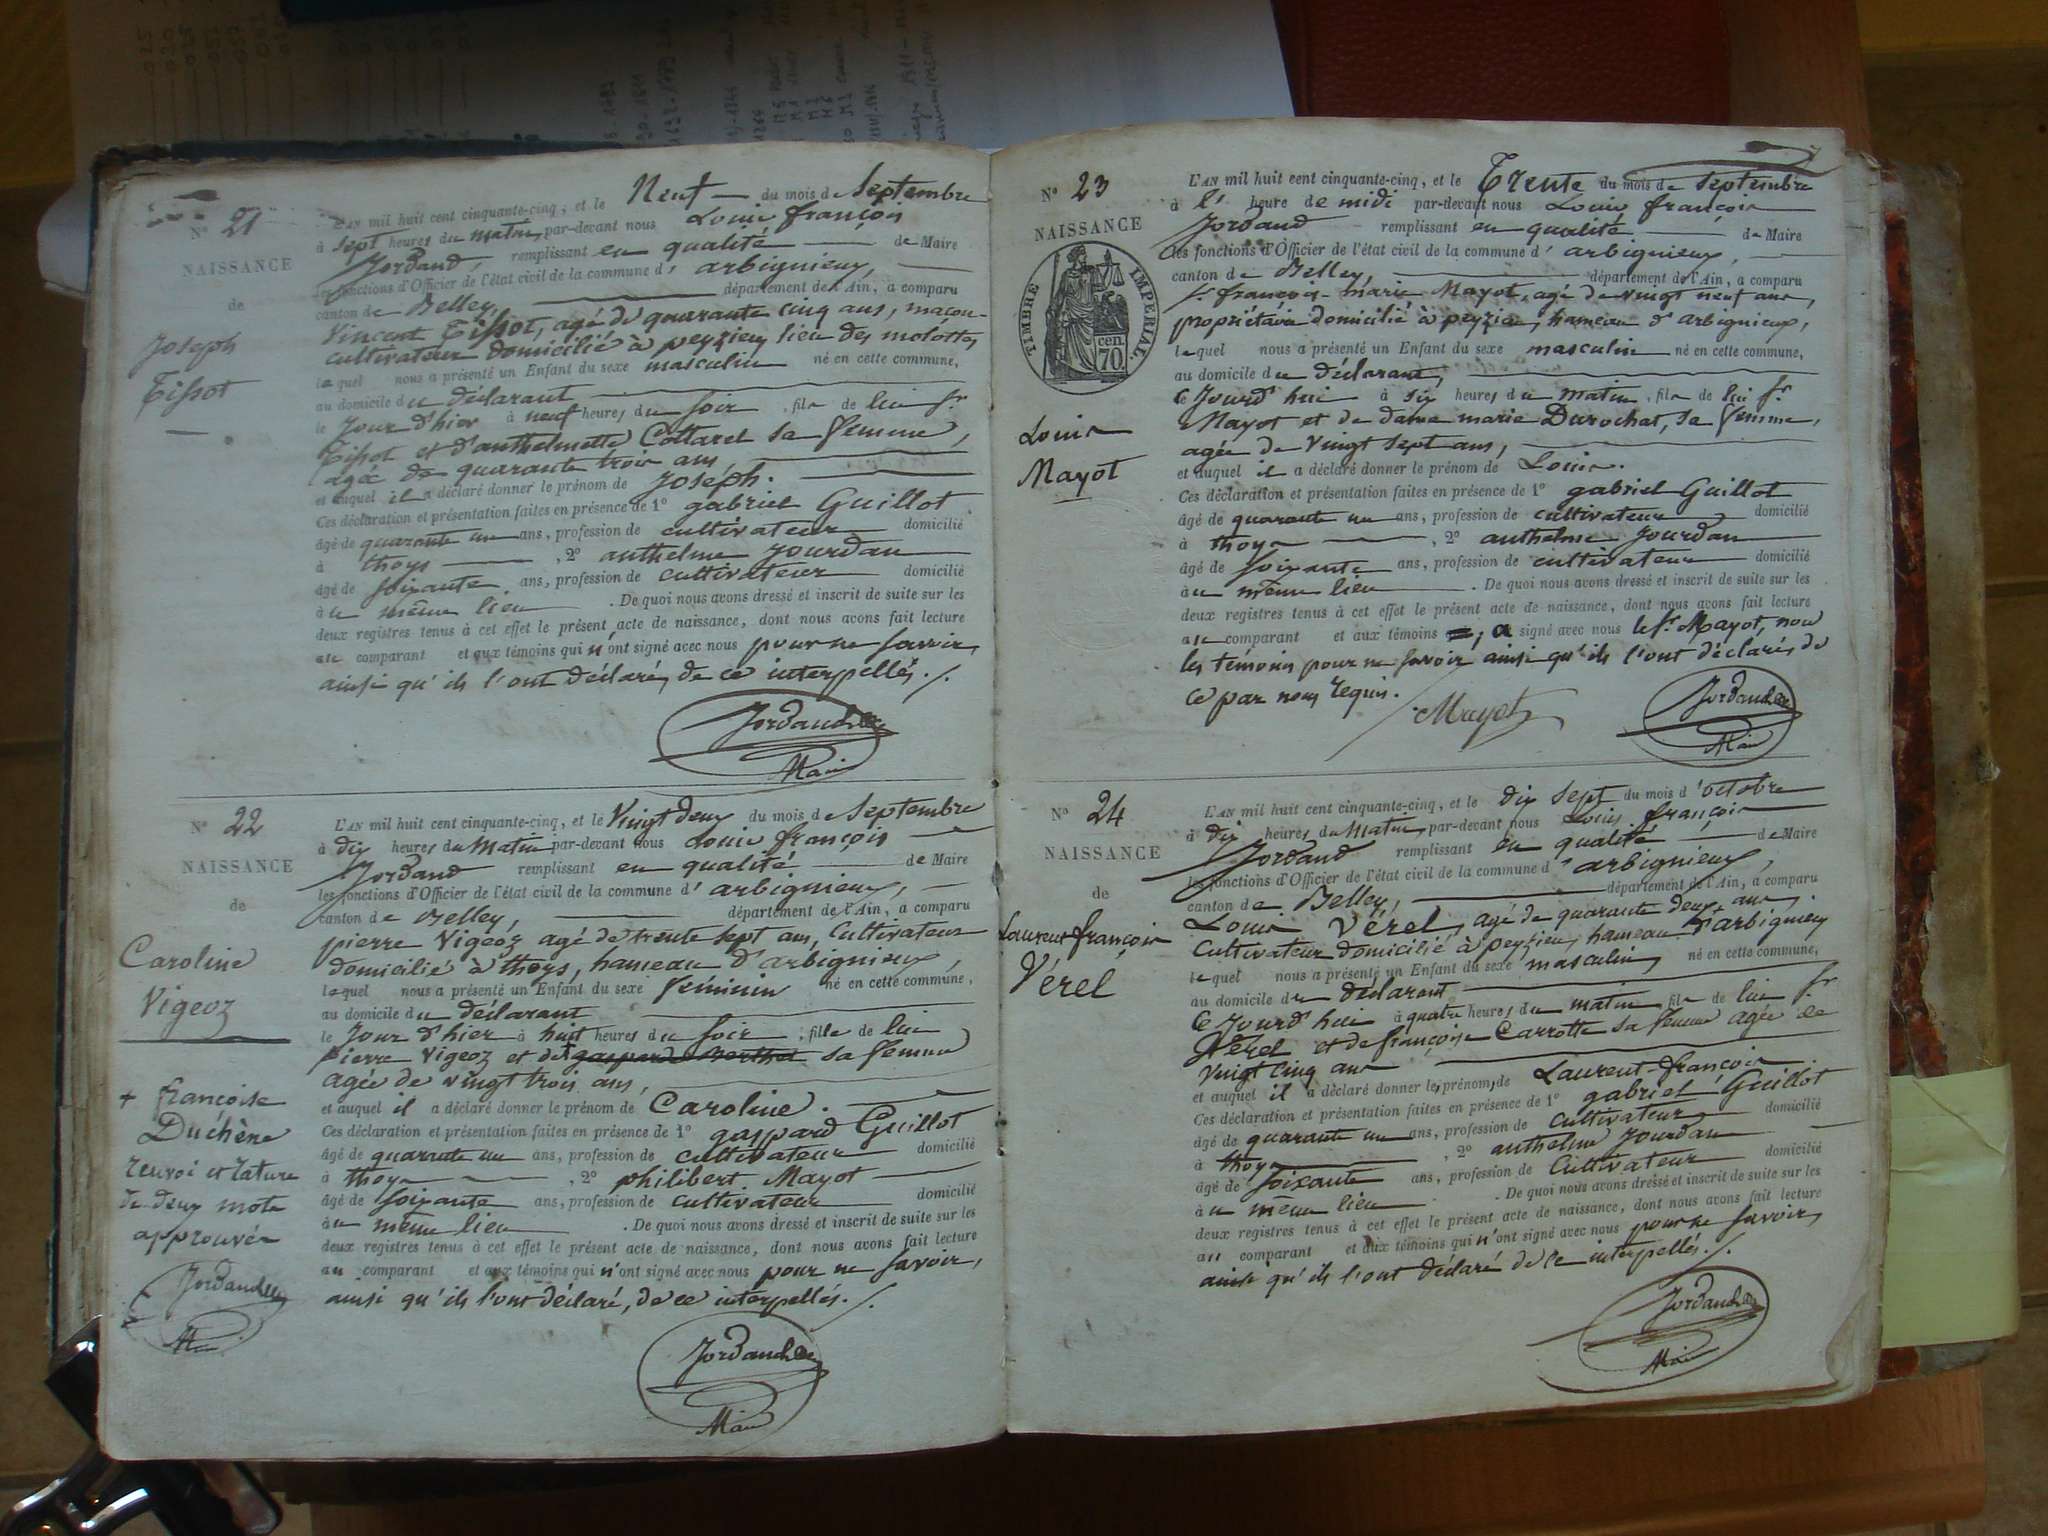 N° 21
NAISSANCE
de
Joseph
Tissot
L'AN mil huit cent cinquante-cinq, et le Neuf du mois de Septembre
à sept heures du matin, par-devant nous Louis françois
Jordand, remplissant en qualité de Maire
les fonctions d'Officier de l'état civil de la commune d'arbignieux,
canton de Belley, département de l'Ain, a comparu
Vincent Tissot, agé de quarante cinq ans, maçon-
cultivateur domicilié à peyzieu, lieu des molottes
lequel nous a présenté un Enfant du sexe masculin né en cette commune,
au domicile du déclarant
le Jour d'hier à neuf heures du soir, fils de lui sr
Tissot et d'anthelmette Cottarel sa femme,
agée de quarante trois ans
et auquel il a déclaré donner le prénom de Joseph.
Ces déclaration et présentation faites en présence de 1° gabriel Guillot
âgé de quarante un ans, profession de cultivateur domicilié
à thoys, 2° anthelme Jourdan
âgé de soixante ans, profession de cultivateur domicilié
àu même lieu. De quoi nous avons dressé et inscrit de suite sur les
deux registres tenus à cet effet le présent acte de naissance, dont nous avons fait lecture
au comparant et aux témoins qui n'ont signé avec nous pour ne savoir,
ainsi qu'ils l'ont déclaré, de ce interpellés./.
Jordand
Maire
N° 22
NAISSANCE
de
Caroline
Vigeoz
+ françoise
Duchène
renvoi et rature
de deux mots
approuvés
Jordand
Maire
L'AN mil huit cent cinquante-cinq, et le Vingt deux du mois de Septembre
à dix heures du Matin par-devant nous Louis françois
Jordand remplissant en qualité de Maire
les fonctions d'Officier de l'état civil de la commune d'arbignieux,
canton de Belley, département de l'Ain, a comparu
pierre Vigeoz agé de trente sept ans, Cultivateur
domicilié à thoys, hameau d'arbignieux,
lequel nous a présenté un Enfant du sexe féminin né en cette commune,
au domicile du déclarant
le Jour d'hier à huit heures du soir, fille de lui
pierre Vigeoz et de + gasparde Berthet sa femme
agée de vingt trois ans,
et auquel il a déclaré donner le prénom de Caroline.
Ces déclaration et présentation faites en présence de 1° gaspard Guillot
âgé de quarante un ans, profession de cultivateur domicilié
à thoys, 2° philibert Mayot
âgé de soixante ans, profession de cultivateur domicilié
àu même lieu. De quoi nous avons dressé et inscrit de suite sur les
deux registres tenus à cet effet le présent acte de naissance, dont nous avons fait lecture
au comparant et aux témoins qui n'ont signé avec nous pour ne savoir,
ainsi qu'ils l'ont déclaré, de ce interpellés./.
Jordand
Maire
N° 23
NAISSANCE
TIMBRE IMPERIAL.
70 cen
Louis
Mayot
L'AN mil huit cent cinquante-cinq, et le Trente du mois de Septembre
à l' heure de midi par-devant nous Louis françois
Jordand remplissant en qualité de Maire
les fonctions d'Officier de l'état civil de la commune d'arbignieux,
canton de Belley, département de l'Ain, a comparu
sr françois-marie Mayot, agé de vingt neuf ans,
propriétaire domicilié à peyzieu, hameau d'arbignieux,
lequel nous a présenté un Enfant du sexe masculin né en cette commune,
au domicile du déclarant,
ce Jourd'hui à six heures du matin, fils de lui sr
Mayot et de dame marie Durochat, sa femme,
agée de vingt sept ans,
et auquel il a déclaré donner le prénom de Louis.
Ces déclaration et présentation faites en présence de 1° gabriel Guillot
âgé de quarante un ans, profession de cultivateur domicilié
à thoys, 2° anthelme Jourdan
âgé de soixante ans, profession de cultivateur domicilié
àu même lieu. De quoi nous avons dressé et inscrit de suite sur les
deux registres tenus à cet effet le présent acte de naissance, dont nous avons fait lecture
au comparant et aux témoins, a signé avec nous le sr Mayot, non
les témoins pour ne savoir ainsi qu'ils l'ont déclaré, de
ce par nous requis.
Mayot
Jordand
Maire
N° 24
NAISSANCE
de
Laurent-françois
Vérel
L'AN mil huit cent cinquante-cinq, et le dix sept du mois d'octobre
à dix heures du Matin, par-devant nous Louis françois
Jordand remplissant en qualité de Maire
les fonctions d'Officier de l'état civil de la commune d'arbignieux,
canton de Belley, département de l'Ain, a comparu
Louis Vérel, agé de quarante deux ans,
Cultivateur domicilié à peyzieu, hameau d'arbignieux
lequel nous a présenté un Enfant du sexe masculin, né en cette commune,
au domicile du déclarant
ce Jourd'hui à quatre heures du matin fils de lui sr
Vérel et de françoise Carrotte sa femme agée de
vingt cinq ans
et auquel il a déclaré donner le prénom de Laurent-françois
Ces déclaration et présentation faites en présence de 1° gabriel Guillot
âgé de quarante un ans, profession de cultivateur domicilié
à thoys, 2° anthelme Jourdan
âgé de soixante ans, profession de Cultivateur domicilié
àu même lieu. De quoi nous avons dressé et inscrit de suite sur les
deux registres tenus à cet effet le présent acte de naissance, dont nous avons fait lecture
au comparant et aux témoins qui n'ont signé avec nous pour ne savoir,
ainsi qu'ils l'ont déclaré de ce interpellés./.
Jordand
Maire